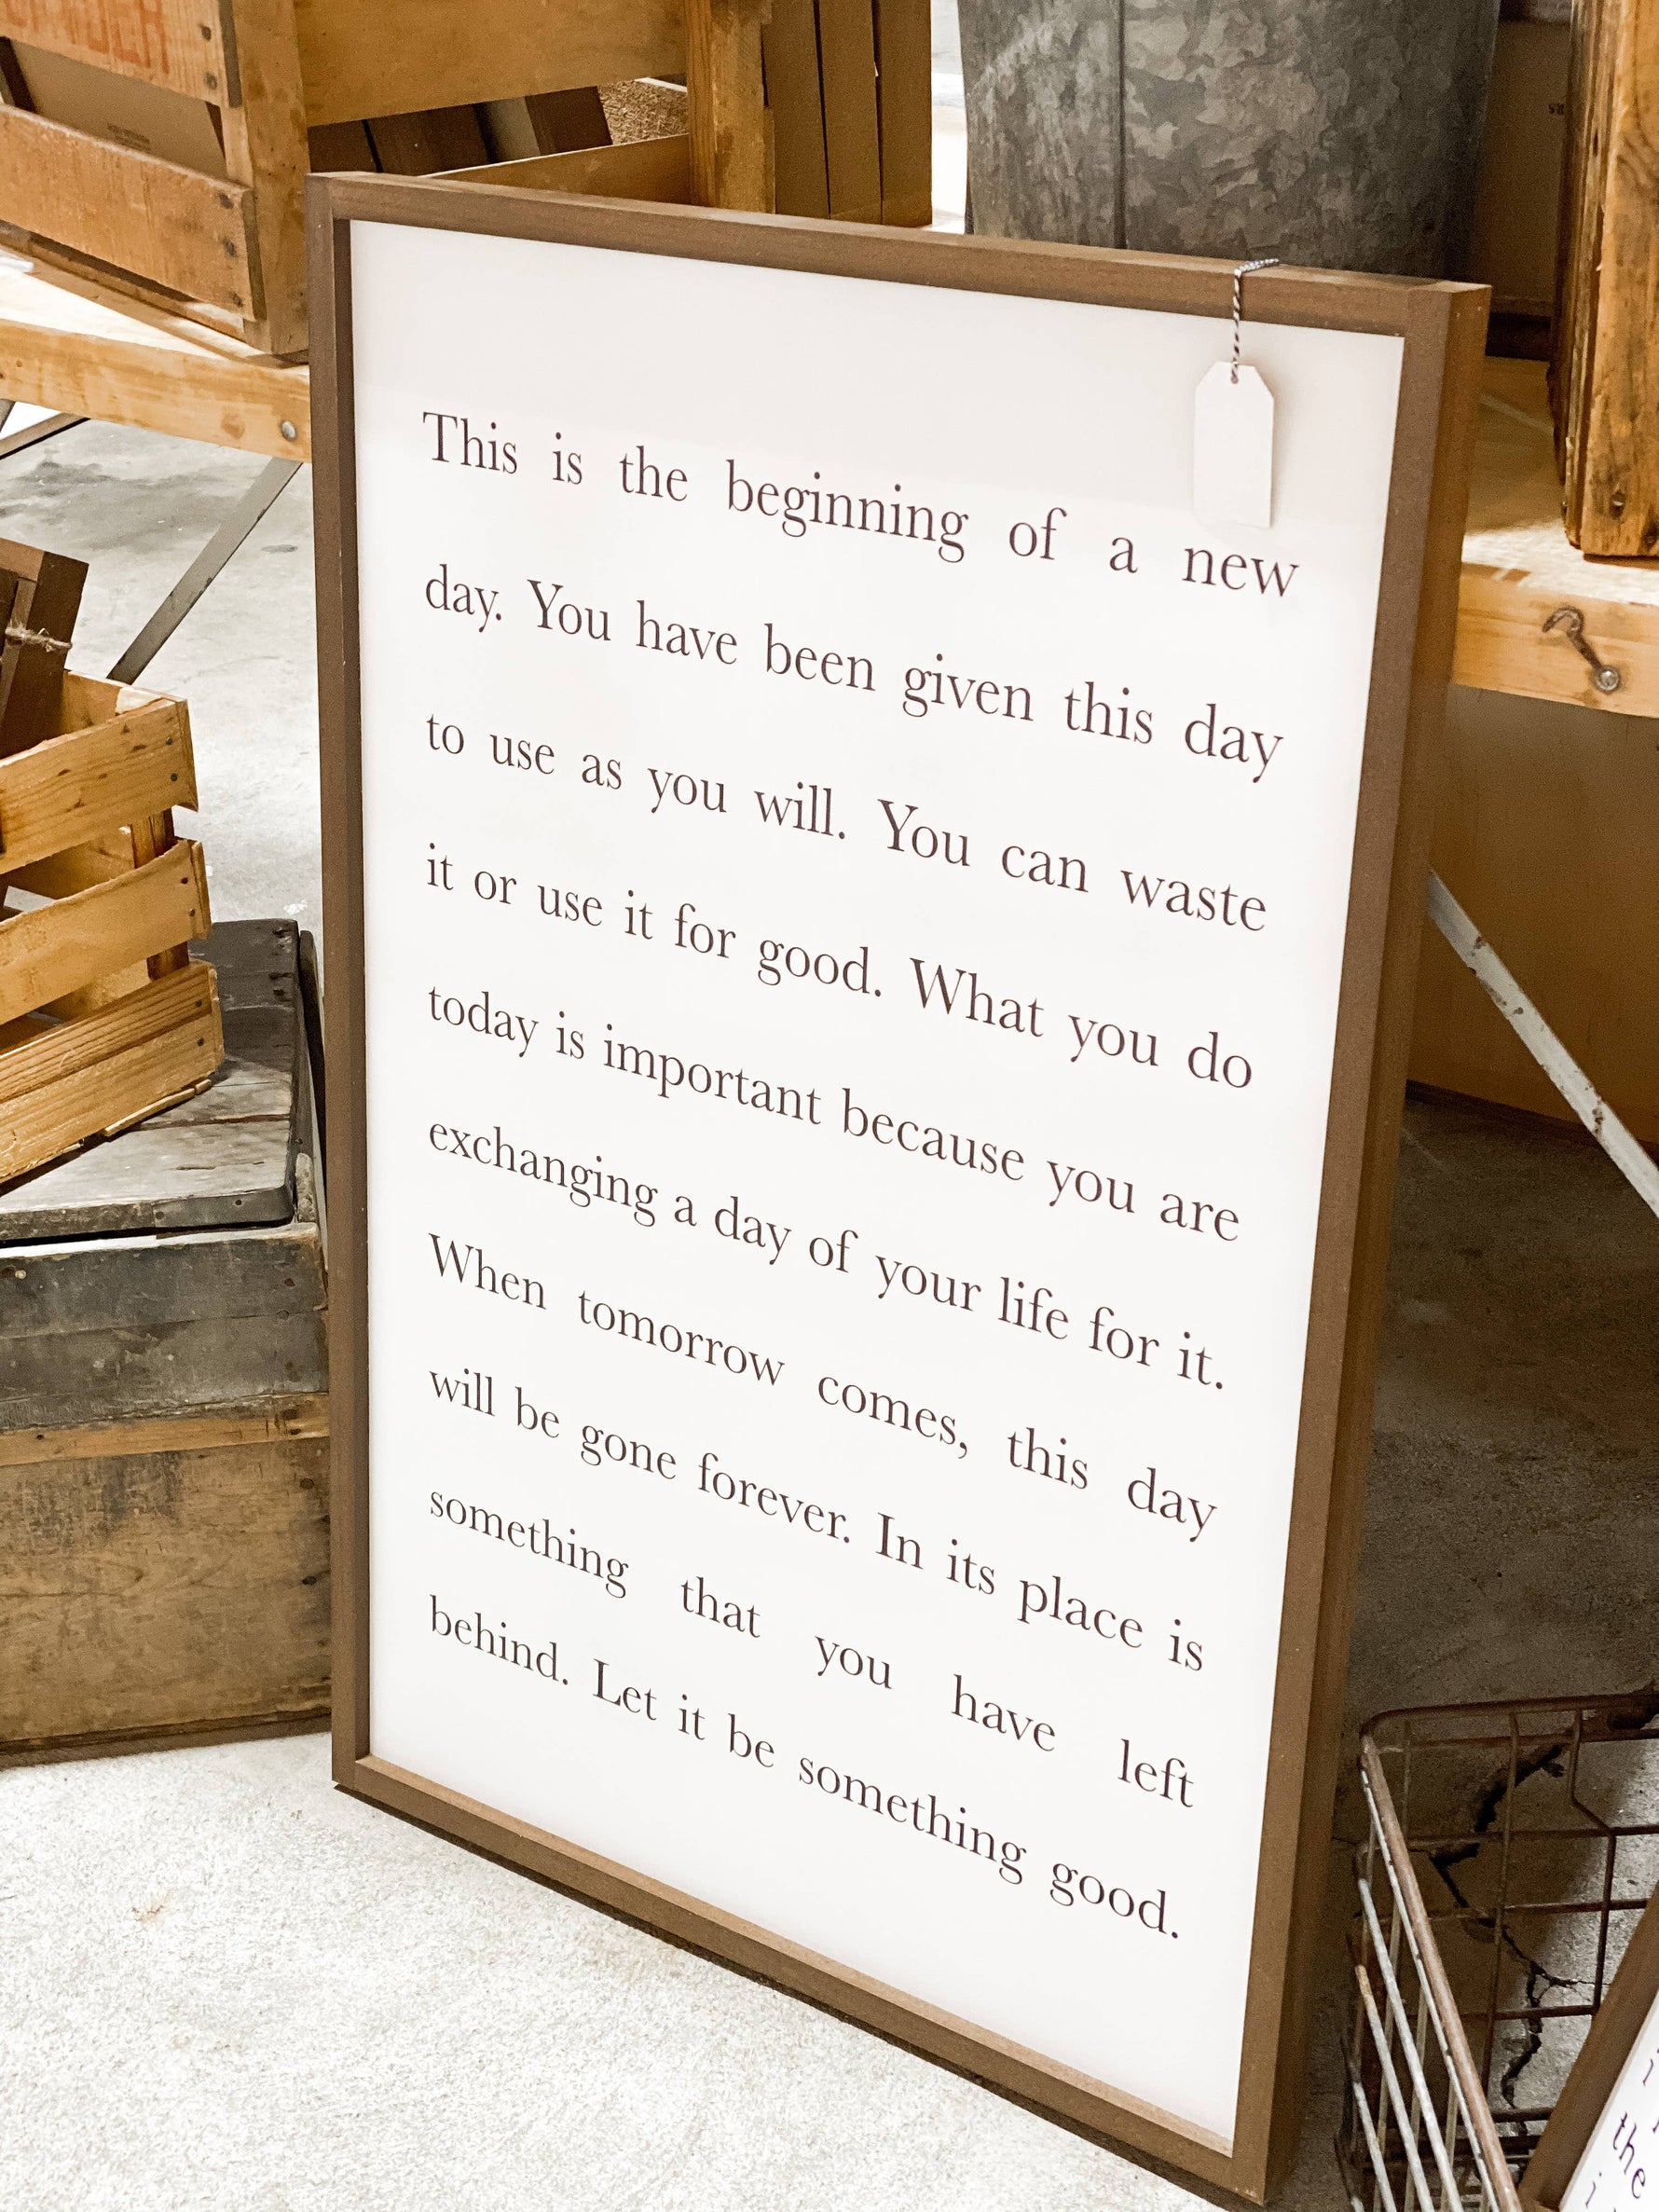 This is the beginning of a new
day. You have been given this day
to use as you will. You can waste
it or use it for good. What you do
today is important because you are
exchanging a day of your life for it.
When tomorrow comes, this day
will be gone forever. In its place is
something that you have left
behind. Let it be something good.
the